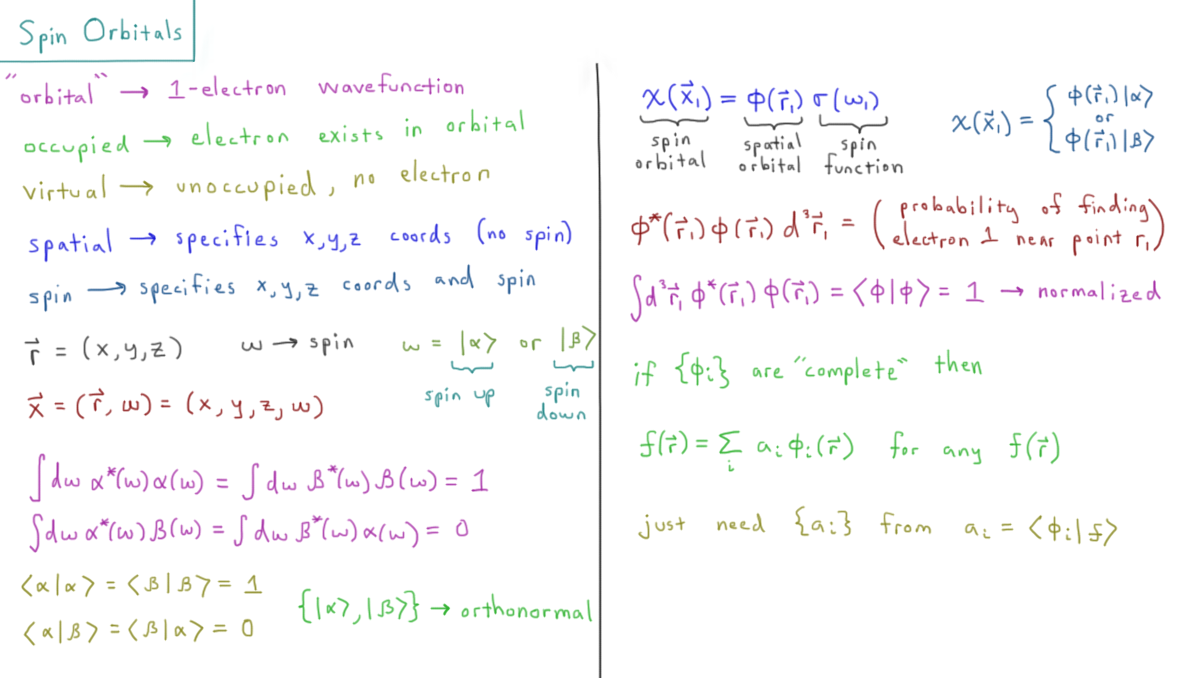 Spin Orbitals
"orbital" → 1-electron wavefunction
occupied → electron exists in orbital
virtual → unoccupied, no electron
spatial → specifies x,y,z coords (no spin)
spin → specifies x,y,z coords and spin
r⃗ = (x,y,z) ω → spin ω = |α⟩ or |β⟩
spin up spin down
x⃗ = (r⃗, ω) = (x, y, z, ω)
∫dω α*(ω)α(ω) = ∫dω β*(ω)β(ω) = 1
∫dω α*(ω)β(ω) = ∫dω β*(ω)α(ω) = 0
⟨α|α⟩ = ⟨β|β⟩ = 1
⟨α|β⟩ = ⟨β|α⟩ = 0
{|α⟩, |β⟩} → orthonormal
χ(x⃗₁) = φ(r⃗₁) σ(ω₁)
spin orbital spatial orbital spin function
χ(x⃗₁) = { φ(r⃗₁)|α⟩
or
φ(r⃗₁)|β⟩
φ*(r⃗₁) φ(r⃗₁) d³r⃗₁ = (probability of finding
electron 1 near point r₁)
∫d³r⃗₁ φ*(r⃗₁) φ(r⃗₁) = ⟨φ|φ⟩ = 1 → normalized
if {φᵢ} are "complete" then
f(r⃗) = Σᵢ aᵢ φᵢ(r⃗) for any f(r⃗)
just need {aᵢ} from aᵢ = ⟨φᵢ|f⟩